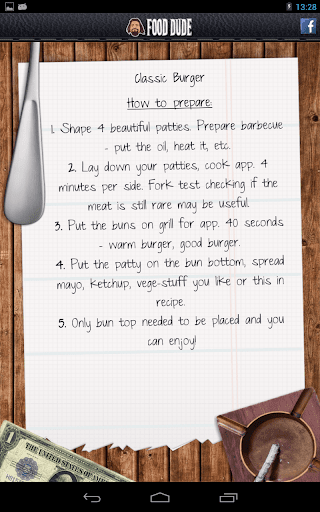 13:28
FOOD DUDE
f
Classic Burger
How to prepare:
1. Shape 4 beautiful patties. Prepare barbecue
- put the oil, heat it, etc.
2. Lay down your patties, cook app. 4
minutes per side. Fork test checking if the
meat is still rare may be useful.
3. Put the buns on grill for app. 40 seconds
- warm burger, good burger.
4. Put the patty on the bun bottom, spread
mayo, ketchup, vege-stuff you like or this in
recipe.
5. Only bun top needed to be placed and you
can enjoy!
1
THE UNITED STATES OF AMER